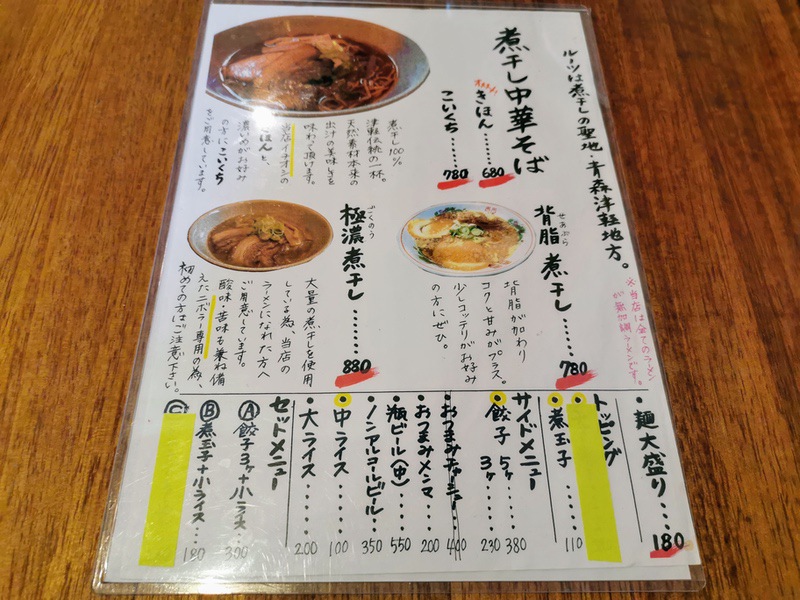 ルーツは煮干しの聖地・青森津軽地方。
※当店は全てのラーメン
が無加調ラーメンです。
煮干し中華そば
きほん……… 680
こいくち……… 780
煮干し100%
津軽伝統の一杯。
天然素材本来の
出汁の美味しさを
味わって頂けます。
当店イチオシの
きほんと、
濃いめがお好み
の方にこいくち
をご用意しています。
せあぶら
背脂煮干し…… 780
背脂が加わり
コクと甘みがプラス。
少しコッテリがお好み
の方にぜひ。
ごくのう
極濃煮干し……… 880
大量の煮干しを使用
している為、当店の
ラーメンになれた方へ
ご用意しています。
酸味・苦味も兼ね備
えたニボラー専用の為、
初めての方はご注意下さい。
・麺大盛り…… 180
トッピング
・煮玉子…… 110
サイドメニュー
・餃子 5ヶ 380
3ヶ 230
・おつまみチャーシュー 400
・おつまみメンマ…… 200
・瓶ビール(中)… 550
・ノンアルコールビール… 350
・中ライス…… 100
・大ライス…… 200
セットメニュー
Ⓐ餃子3ヶ+小ライス… 300
Ⓑ煮玉子+小ライス… 180
Ⓒ